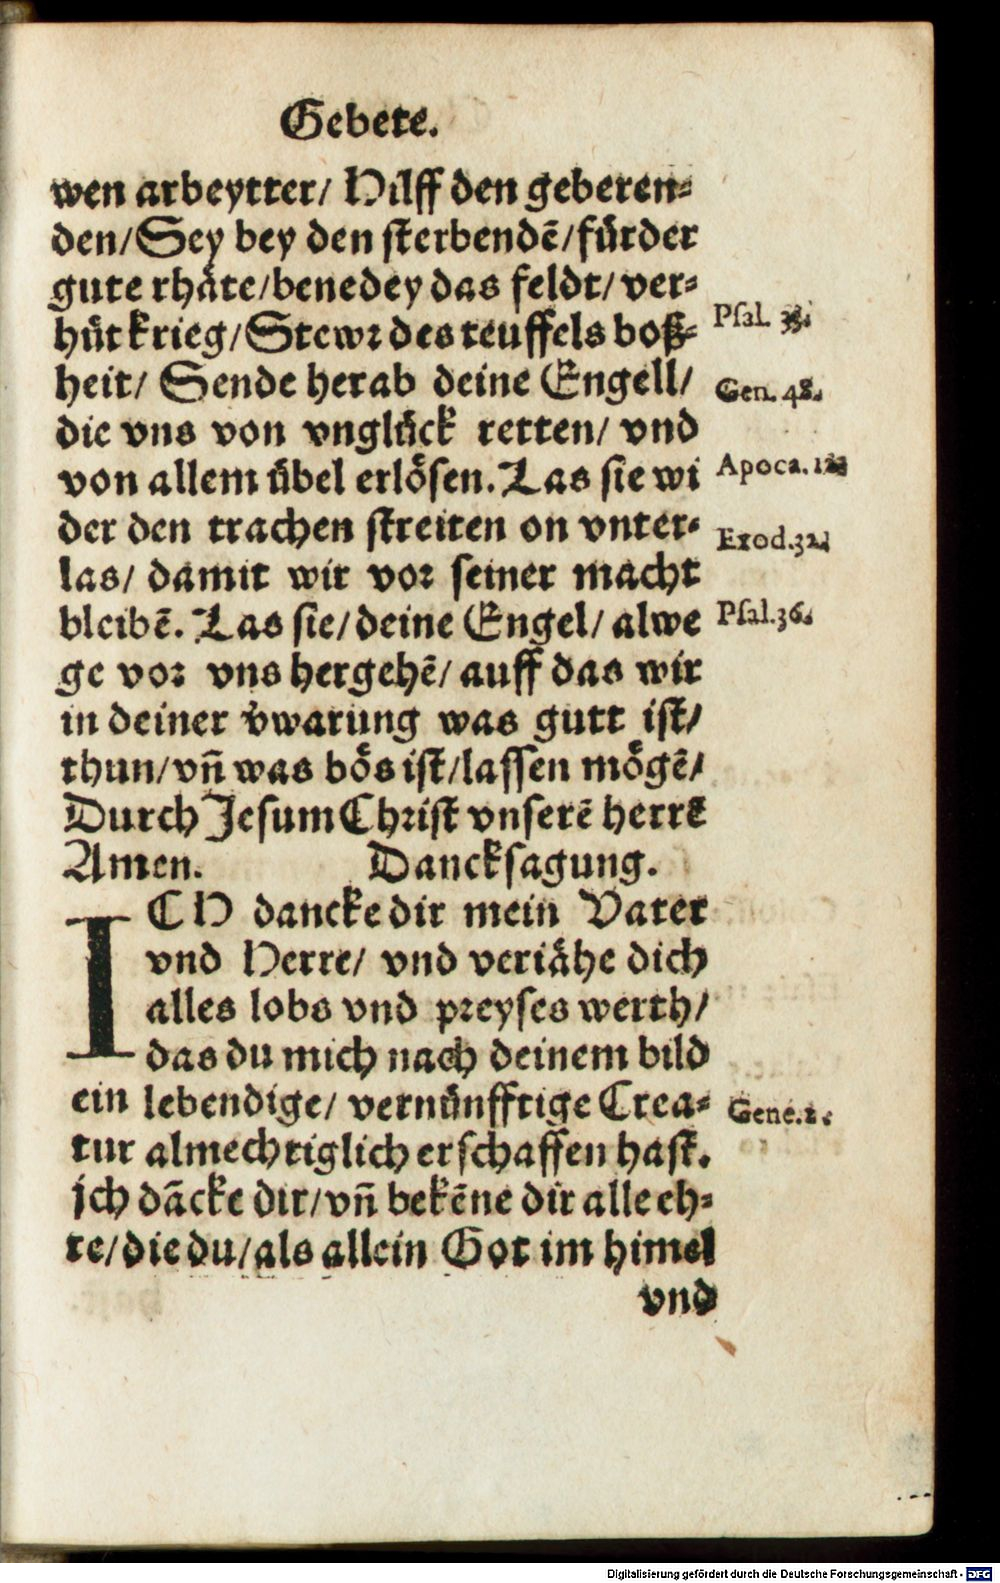 Gebete.
wen arbeytter/ Hilff den geberen-
den/Sey bey den sterbendē/fürder
gute rhäte/benedey das feldt/ ver-
hüt krieg/Stewr des teuffels boß-
Psal. 33.
heit/ Sende herab deine Engell/
Gen. 48.
die vns von vnglück retten/ vnd
von allem übel erlösen. Las sie wi
Apoca. 12
der den trachen streiten on vnter-
Exod.32.
las/ damit wir vor seiner macht
bleibē. Las sie/deine Engel/ alwe
Psal.36.
ge vor vns hergehē/ auff das wir
in deiner v̄warung was gutt ist/
thun/vn̄ was bös ist/lassen mögē/
Durch Jesum Christ vnserē herrē
Amen. Dancksagung.
ICH dancke dir mein Vater
vnd Herre/ vnd veriähe dich
alles lobs vnd preyses werth/
das du mich nach deinem bild
ein lebendige/ vernünfftige Crea-
Gene.1.
tur almechtiglich erschaffen hast.
jch dācke dir/vn̄ bekēne dir alle eh-
re/die du/als allein Got im himel
vnd
Digitalisierung gefördert durch die Deutsche Forschungsgemeinschaft - DFG